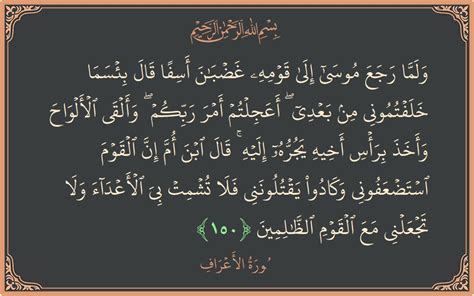 بِسْمِ اللَّهِ الرَّحْمَٰنِ الرَّحِيمِ
وَلَمَّا رَجَعَ مُوسَىٰٓ إِلَىٰ قَوْمِهِۦ غَضْبَٰنَ أَسِفًا قَالَ بِئْسَمَا
خَلَفْتُمُونِي مِنۢ بَعْدِيٓ ۖ أَعَجِلْتُمْ أَمْرَ رَبِّكُمْ ۖ وَأَلْقَى الْأَلْوَاحَ
وَأَخَذَ بِرَأْسِ أَخِيهِ يَجُرُّهُۥٓ إِلَيْهِ ۚ قَالَ ابْنَ أُمَّ إِنَّ الْقَوْمَ
اسْتَضْعَفُونِي وَكَادُوا۟ يَقْتُلُونَنِي فَلَا تُشْمِتْ بِيَ الْأَعْدَآءَ وَلَا
تَجْعَلْنِي مَعَ الْقَوْمِ الظَّٰلِمِينَ ﴿١٥٠﴾
سُورَةُ الْأَعْرَافِ